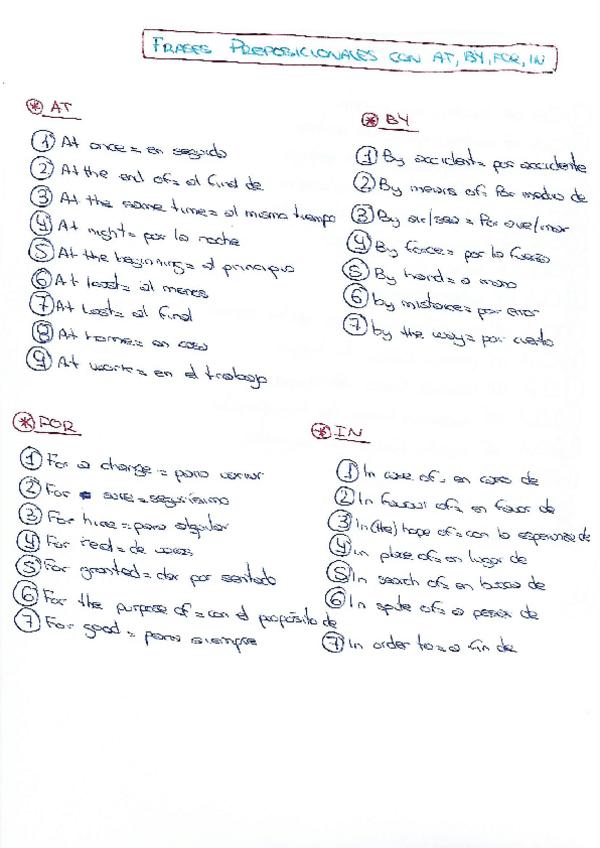 FRASES PREPOSICIONALES CON AT, BY, FOR, IN
* AT
1 At once = en seguida
2 At the end of = al final de
3 At the same time = al mismo tiempo
4 At night = por la noche
5 At the beginning = al principio
6 At least = al menos
7 At last = al final
8 At home = en casa
9 At work = en el trabajo
* BY
1 By accident = por accidente
2 By means of = Por medio de
3 By air/sea = Por aire/mar
4 By force = por la fuerza
5 By hand = a mano
6 by mistake = por error
7 by the way = por cierto
* FOR
1 For a change = para variar
2 For sure = segurísimo
3 For hire = para alquilar
4 For real = de veras
5 For granted = dar por sentado
6 For the purpose of = con el propósito de
7 For good = para siempre
* IN
1 In case of = en caso de
2 In favour of = en favor de
3 In (the) hope of = con la esperanza de
4 in place of = en lugar de
5 In search of = en busca de
6 In spite of = a pesar de
7 In order to = a fin de